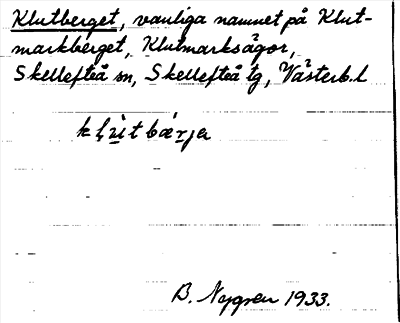 Klutberget, vanliga namnet på Klut-
markberget, Klutmarksågor,
Skellefteå sn, Skellefteå tg, Västerb. l
kl̥ùtbærja
B. Nygren 1933.